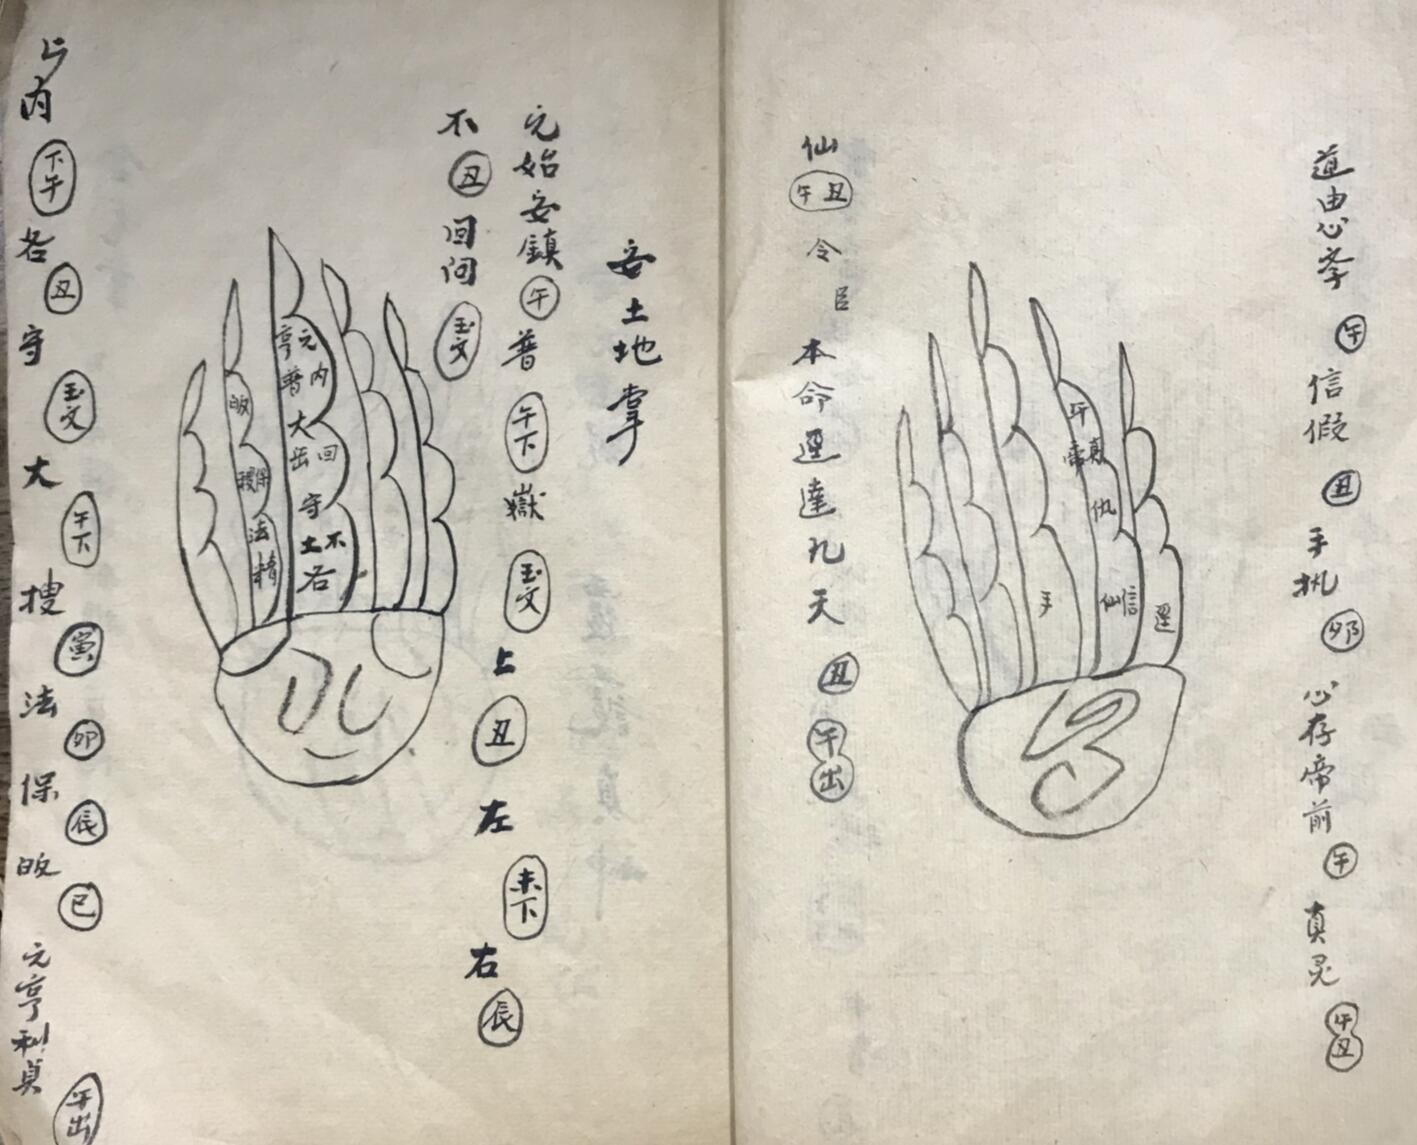 道由心孝 午 信假 丑 手执 卯 心存帝前 午 真灵 午丑
仙 午丑 令臣 本命 逕達九天 丑 午出
午
帝真
执
手
仙信
逕
安土地掌
元始安鎮 午 普 午下 嶽 玉文 上 丑 左 未下 右 辰
不 丑 回问 玉文
内 下午 各 丑 守 玉文 大 午下 搜 寅 法 卯 保 辰 皈 巳 元亨利貞 午出
亨元
普内
大
岳回
守
土不
各
皈
搜保
法
精